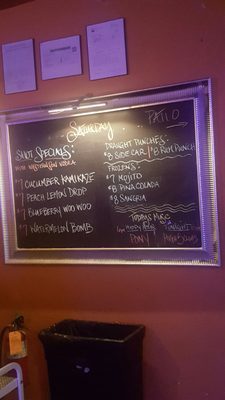 Saturday
PATIO
SHOT SPECIALS:
$7 CUCUMBER KAMIKAZE
$7 PEACH LEMON DROP
$7 BLUEBERRY WOO WOO
$7 WATERMELON BOMB
DRAUGHT PUNCHES:
$8 SIDE CAR / $8 RUM PUNCH
FROZENS:
$7 MOJITO
$8 PINA COLADA
$8 SANGRIA
TODAYS MUSIC
PONY